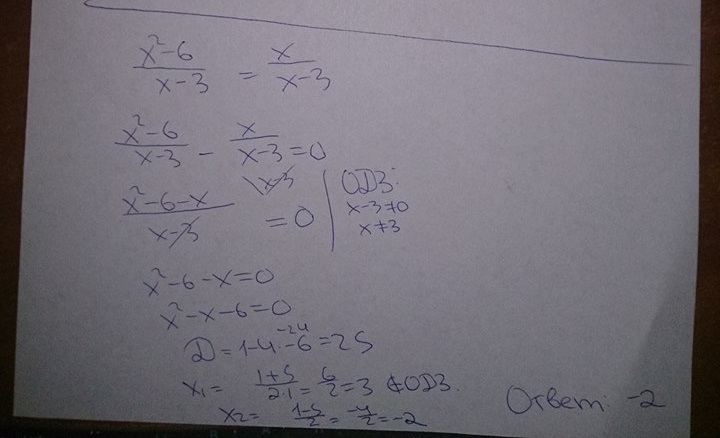 x²-6/x-3 = x/x-3
x²-6/x-3 - x/x-3 = 0
x²-6-x/x-3 = 0 | x-3
ОДЗ:
x-3≠0
x≠3
x²-6-x=0
x²-x-6=0
D=1-4·-6=25
-24
x₁= 1+5/2·1 = 6/2 = 3 ∉ ОДЗ.
x₂= 1-5/2 = -4/2 = -2
Ответ: -2